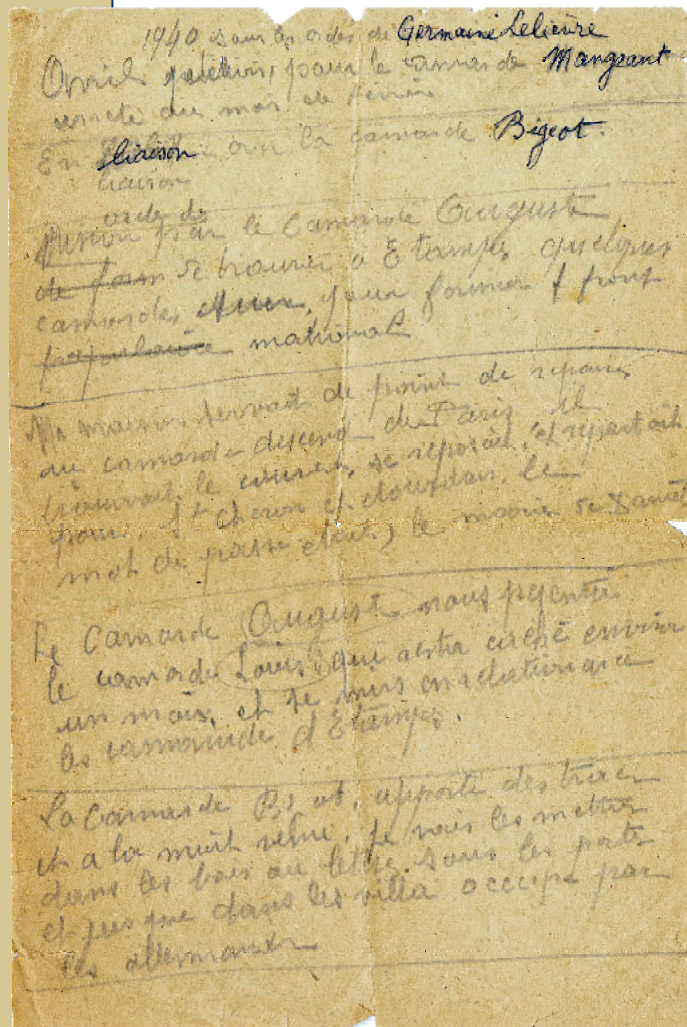 1940 sous les ordes de Germaine Lelièvre
Avril pour le camarade Mangeant
au mois de Février
En liaison avec la camarade Bigeot.
liaison
ordre de
Mission par le Camarade Auguste
de form de trouver a Etampes quelques
camarades pour former 1 front
populaire national
Ma maison servait de point de repaire
au camarade descend de Paris il
trouvait le couvert, se reposait, et repartait
pour St cheron et dourdan, le
mot de passe etait) le mairie de
Le Camarade Auguste nous
le camarade Louis qui resta caché environ
un mois, et je mis en relation avec
les camarade d'Etampes.
La camarade apporte des tracs
et a la nuit venu, je vais les mettre
dans les bois au lettre sous les porte
et jusque dans les villa occupe par
les allemands